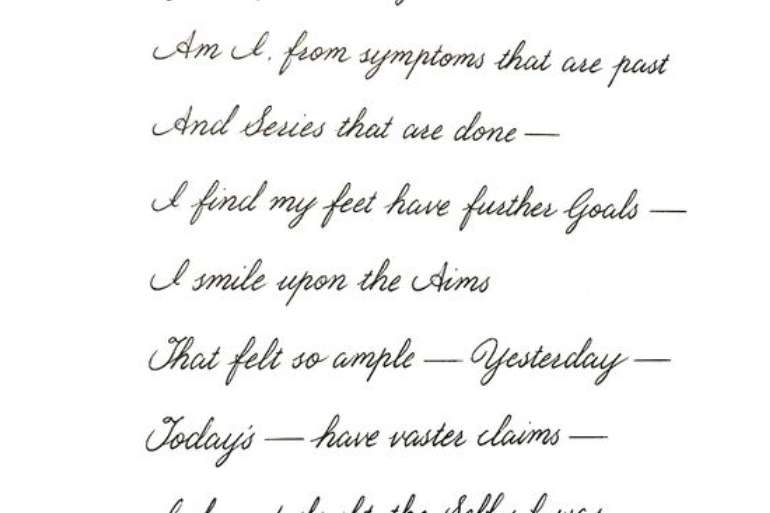 Am I. from symptoms that are past
And Series that are done —
I find my feet have further Goals —
I smile upon the Aims
That felt so ample — Yesterday —
Today's — have vaster claims —
the Self I was